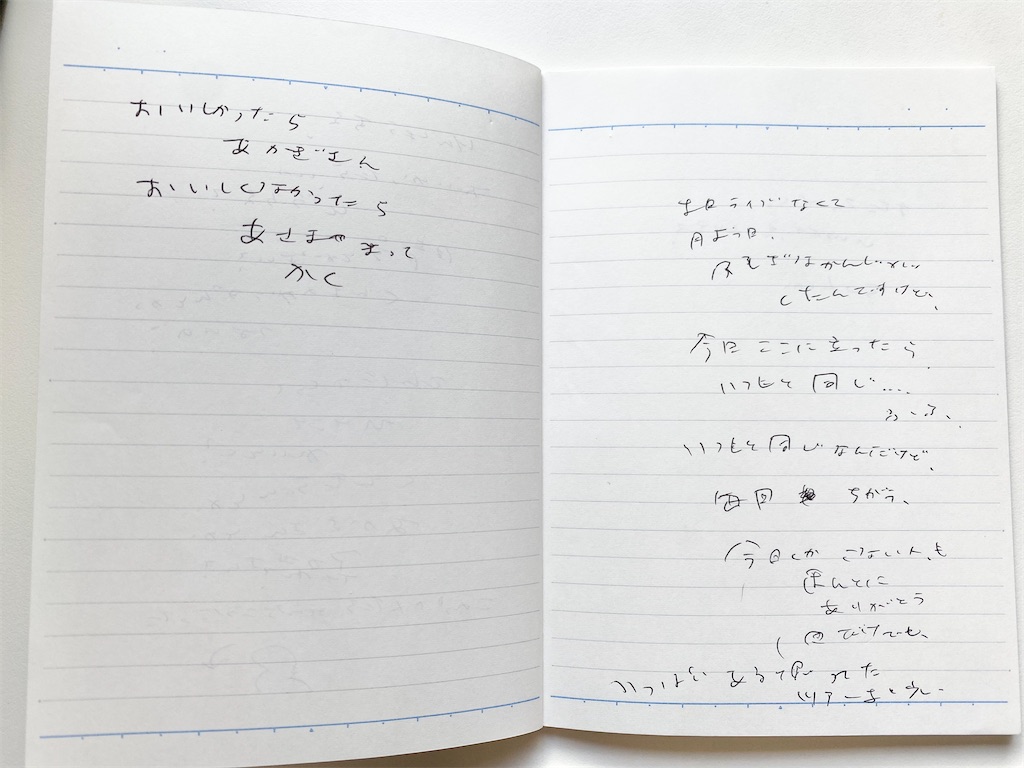 おいしかったら
あかぎさん
おいしくなかったら
あさまや まって
かく
土日ライブなくて
月よう日、
かんじ
したんですけど、
今日ここに立ったら
いつもと同じ....
ふーふ、
いつもと同じなんだけど、
毎回 ちがう、
今日しかこない人も
ほんとに
ありがとう
1回だけでも、
いっぱい ある
ツアー